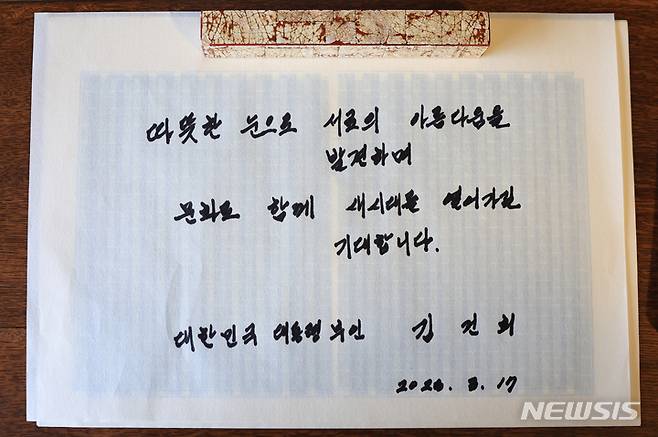 따뜻한 눈으로 서로의 아름다움을
발견하며
문화로 함께 새시대를 열어가길
기대합니다.
대한민국 대통령 부인 김 건 희
2023. 3. 17
NEWSIS